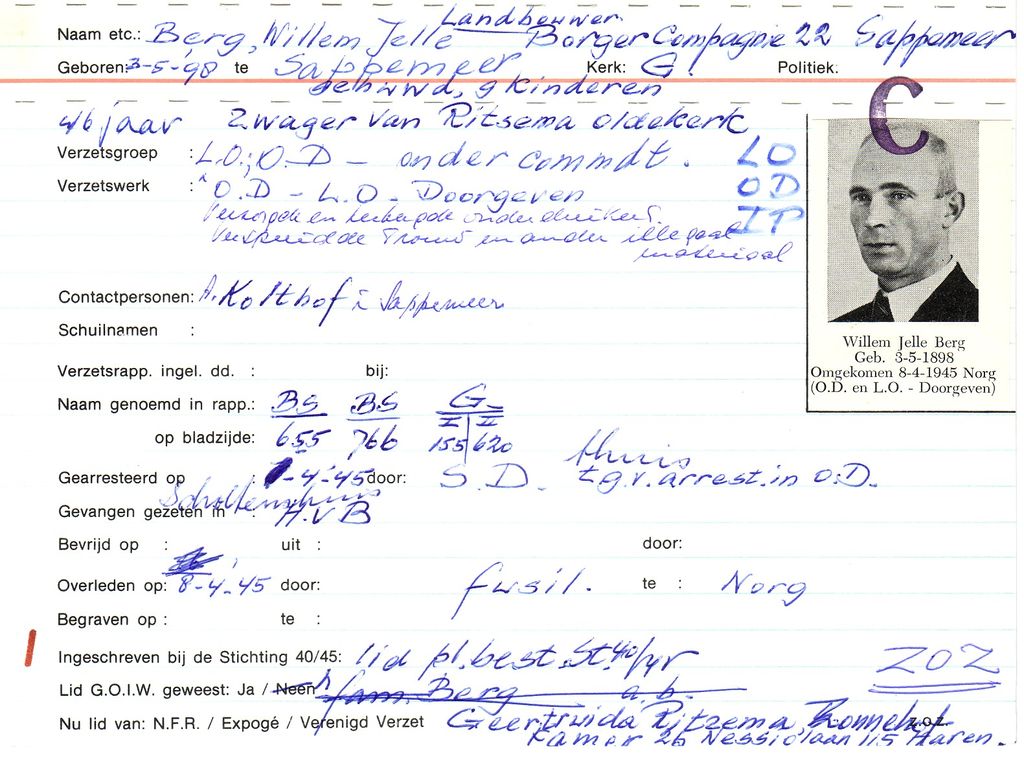 Landbouwer
Naam etc.: Berg, Willem Jelle Borger Compagnie 22 Sappemeer
Geboren: 3-5-98 te Sappemeer Kerk: G. Politiek:
gehuwd, 9 kinderen
C
46 jaar Zwager van Ritsema Oldekerk
Verzetsgroep : L.O., O.D - onder commdt. LO
Verzetswerk : O.D - L.O - Doorgeven OD
Verzorgde en herbergde onderduikers. IP
Verspreidde Trouw en ander illegaal
materiaal
Contactpersonen: A. Kolthof i Sappemeer
Schuilnamen :
Willem Jelle Berg
Geb. 3-5-1898
Omgekomen 8-4-1945 Norg
(O.D. en L.O. - Doorgeven)
Verzetsrapp. ingel. dd. : bij:
Naam genoemd in rapp.: BS BS G
I II
op bladzijde: 655 766 155 620
thuis
Gearresteerd op -4-'45 door: S.D. t.g.v. arrest. in O.D.
Scholtenshuis
Gevangen gezeten in : H.v B
Bevrijd op : uit : door:
Overleden op: 8-4-45 door: fusil. te : Norg
Begraven op : te :
Ingeschreven bij de Stichting 40/45: lid pl. best. St. 40/45 ZOZ
Lid G.O.I.W. geweest: Ja / Neen fam. Berg a.b.
Nu lid van: N.F.R. / Expogé / Verenigd Verzet Geertruida Ritzema z.o.z.
Kamer 26 Nessiolaan 115 Haren.